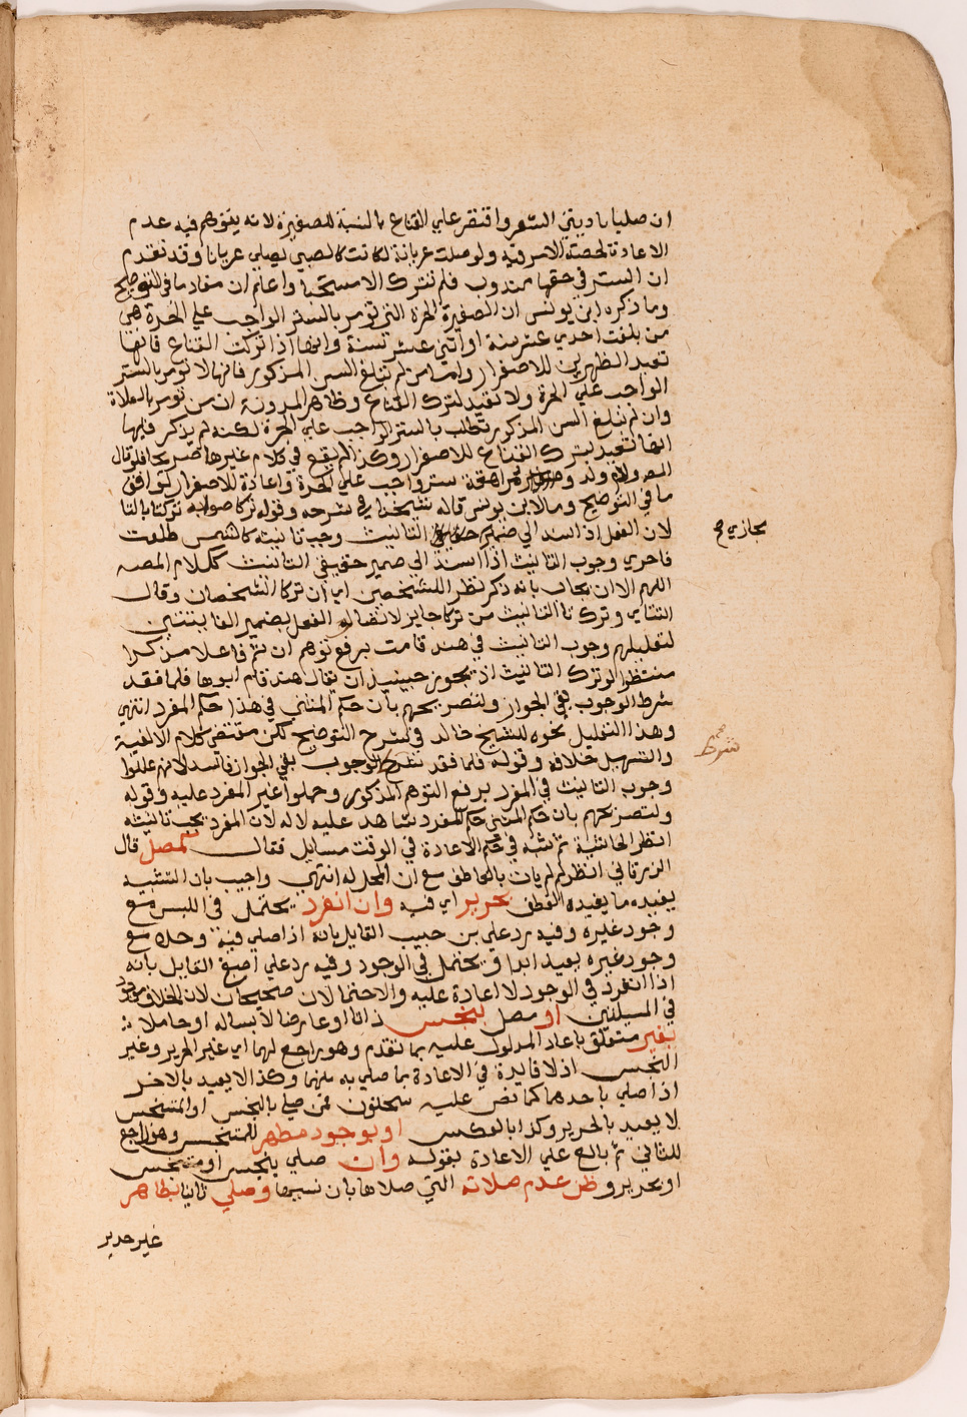 ان صليا باديتي الشعر واقتصر علي القناع بالنسبة للصغيرة لانه يتوهم فيه عدم
الاعادة لخصة الامر فيه ولو صلت عريانة لكانت كالصبي يصلي عريانا وقد تقدم
ان الستر في حقها مندوب فلم تترك الا مستحبا واعلم ان مفاد ما في التوضيح
وما ذكره ابن يونس ان الصغيرة الحرة التي تومر بالستر الواجب علي الحرة هي
من بلغت احدي عشر سنة او اثني عشر سنة وانها اذا تركت القناع فانها
تعيد الظهرين للاصفرار واما من لم تبلغ السن المذكور فانها لا تومر بالستر
الواجب علي الحرة ولا تعيد لترك القناع وظاهر المدونة ان من تومر بالصلاة
وان لم تبلغ السن المذكور تطلب بالستر الواجب علي الحرة لكنه لم يذكر فيها
انها تعيد بترك القناع للاصفرار وكذا لم يقع في كلام غيرها صريحا فلو قال
المص ولام ولد وحرة مراهقة ستر واجب علي الحرة واعادة للاصفرار لتوافق
ما في التوضيح وما لابن يونس قاله شيخنا في شرحه وقوله تركا صوابه تركتا بالتا
لان الفعل اذا اسند الي ضمير التانيث وجب تانيثه كالشمس طلعت
مجازي صح
فاحري وجوب التانيث اذا اسند الي ضمير حقيقي التانيث ككلام المصه
اللهم الا ان يجاب بانه ذكر نظر اللشخصين اي ان تركا الشخصان وقال
التتاي وترك تا التانيث من تركا جايز لاتصال الفعل بضمير الغايبتين
لتعليلهم وجوب التانيث في هند قامت برفع توهم ان ثم فاعلا مذكرا
منتظرا لو ترك التانيث اذ يجوز حينيذ ان يقال هند قام ابوها فلما فقد
شرط الوجوب بقي الجواز ولتصريحهم بان حكم المثني في هذا حكم المفرد انتهي
وهذا التعليل نحوه للشيخ خالد في شرح التوضيح لكن مقتضي كلام الالفية
والتسهيل خلافه وقوله فلما فقد شرط الوجوب بقي الجواز فاسد لانهم عللوا
شرط صح
وجوب التانيث في المفرد برفع التوهم المذكور وحملوا غير المفرد عليه وقوله
ولتصريحهم بان حكم المثني حكم المفرد شاهد عليه لا له لان المفرد يجب تانيثه
انظر الحاشية ثم شبه في حكم الاعادة في الوقت مسايل فقال كمصل قال
الزرقاني انظر لم لم يات بالعاطف مع ان المحل له انتهي واجيب بان التشبيه
يفيده ما يفيده العطف بحرير اي فيه وان انفرد يحتمل في اللبس مع
وجود غيره وفيه رد علي بن حبيب القايل بانه اذا صلي فيه وحده مع
وجود غيره يعيد ابدا ويحتمل في الوجود وفيه رد علي اصبغ القايل بانه
اذا انفرد في الوجود لا اعادة عليه والاحتمالان صحيحان لان الخلاف موجود
في المسيلتين او مصل بنجس ذاتا او عارضا لابسا له او حاملا
بغير متعلق باعاد المدلول عليه بما تقدم وهو راجع لهما اي غير الحرير وغير
النجس اذ لا فايدة في الاعادة بما صلي به منهما وكذا لا يعيد بالاخر
اذا صلي باحدهما كما نص عليه سحنون فمن صلي بالنجس او المتنجس
لا يعيد بالحرير وكذا بالعكس او بوجود مطهر للمتنجس وهو راجع
للثاني ثم بالغ علي الاعادة بقوله وان صلي بنجس او متنجس
او بحرير وظن عدم صلاته التي صلاها بان نسيها وصلي ثانيا بطاهر
غير حرير